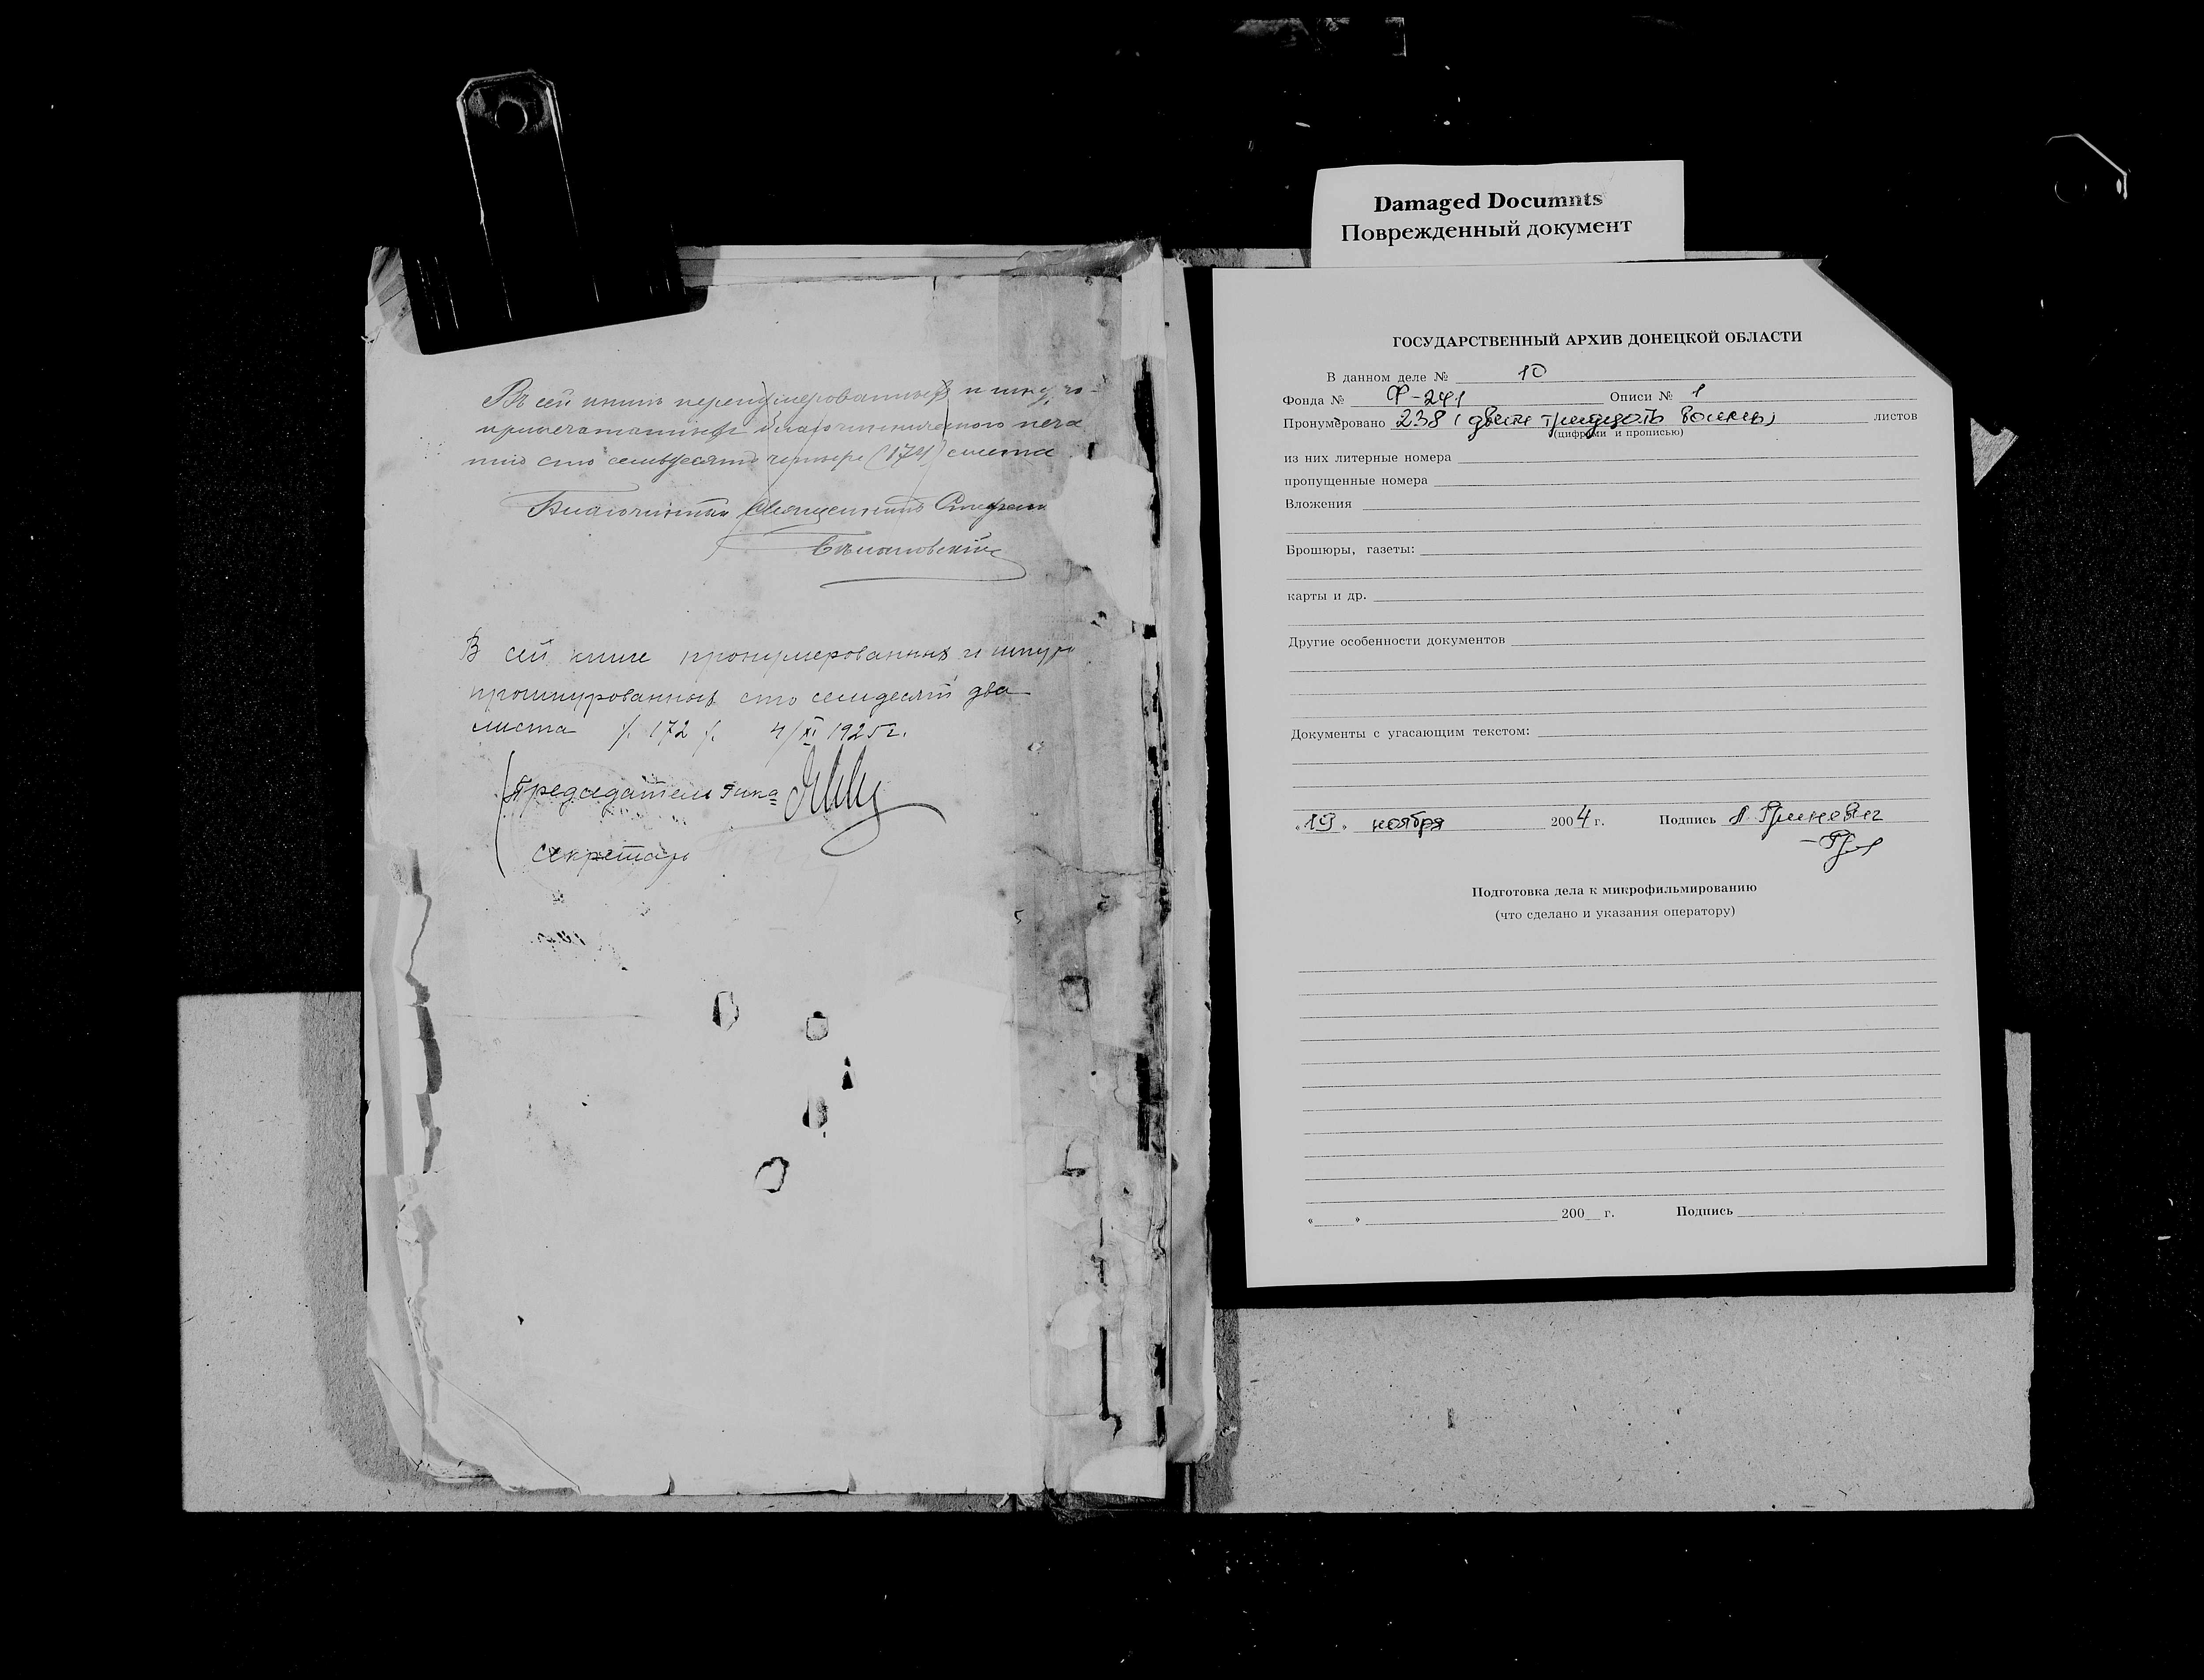 Въ сей книгѣ перенумерованныхъ и шнуро-
припечатанныхъ благочиннического печа
тью сто семьдесятъ четыре (174) листа
Благочинный Священникъ Стефан
В сей книге пронумерованных и шнуро
прошнурованных сто семдесят два
листа /. 172 /. 4/XI 1925 г.
Председатель Рика
Секретарь
Damaged Documnts
Поврежденный документ
ГОСУДАРСТВЕННЫЙ АРХИВ ДОНЕЦКОЙ ОБЛАСТИ
В данном деле № 10
Фонда № Ф-241 Описи № 1
Пронумеровано 238 (двести тридцать восемь) листов
(цифрами и прописью)
из них литерные номера
пропущенные номера
Вложения
Брошюры, газеты:
карты и др.
Другие особенности документов
Документы с угасающим текстом:
«19» ноября 2004 г. Подпись Л. Гриневич
Подготовка дела к микрофильмированию
(что сделано и указания оператору)
« » 200 г. Подпись